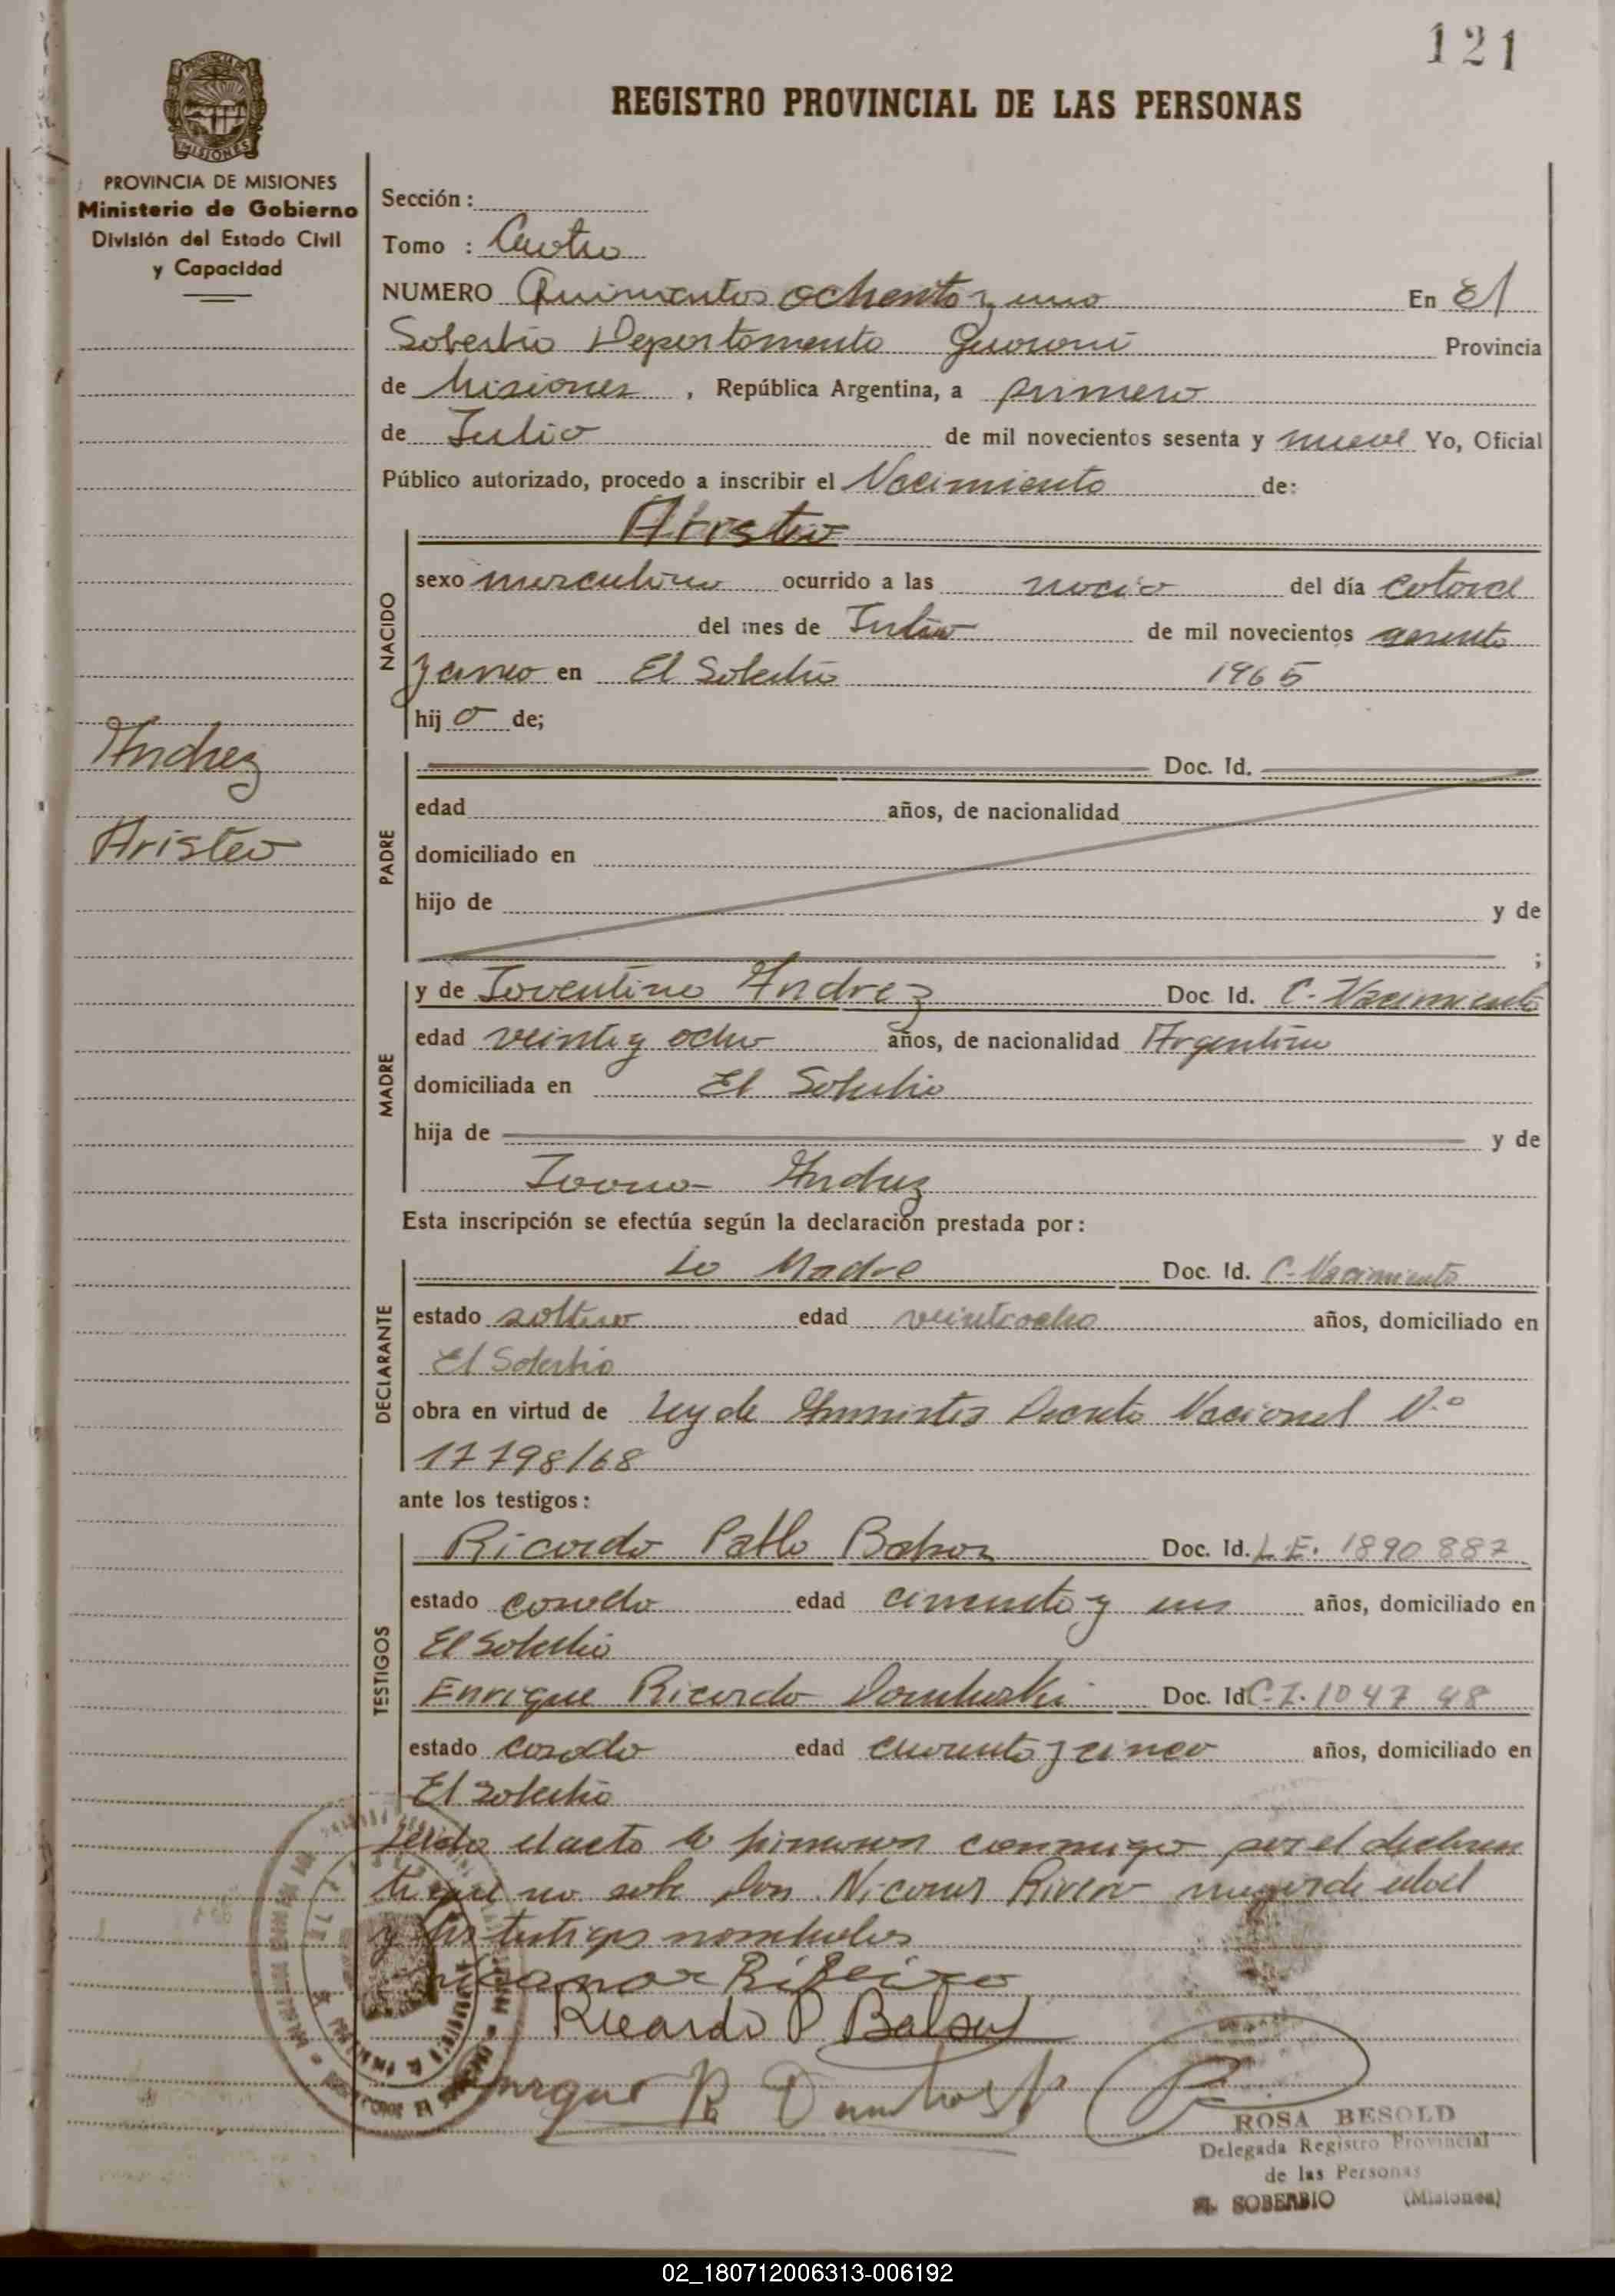 121
REGISTRO PROVINCIAL DE LAS PERSONAS
PROVINCIA DE MISIONES
MISIONES
PROVINCIA DE MISIONES
Ministerio de Gobierno
División del Estado Civil
y Capacidad
Sección :
Tomo : Cuatro
NUMERO Quinientos ochenta y uno En El
Soberbio Departamento Guaraní Provincia
de Misiones , República Argentina, a primero
de Julio de mil novecientos sesenta y nueve Yo, Oficial
Público autorizado, procedo a inscribir el Nacimiento de:
Aristeo
NACIDO
sexo masculino ocurrido a las nació del día catorce
del mes de Julio de mil novecientos sesenta
y cinco en El Soberbio 1965
hij o de;
Andrez
Aristeo
PADRE
Doc. Id.
edad años, de nacionalidad
domiciliado en
hijo de y de
;
MADRE
y de Joventina Andrez Doc. Id. C. Nacimiento
edad veinte y ocho años, de nacionalidad Argentina
domiciliada en El Soberbio
hija de y de
Joana Andrez
Esta inscripción se efectúa según la declaración prestada por:
DECLARANTE
La Madre Doc. Id. C. Nacimiento
estado soltera edad veintiocho años, domiciliado en
El Soberbio
obra en virtud de Ley de Amnistia Decreto Nacional N.o
17798/68
ante los testigos:
TESTIGOS
Ricardo Pablo Doc. Id. L.E. 1890 887
estado casado edad cincuenta y un años, domiciliado en
El Soberbio
Enrique Ricardo Doc. Id. C.I. 1047 48
estado casado edad cuarenta y cinco años, domiciliado en
El Soberbio
Leida el acta la firmaron conmigo por el declaran
te que no sabe Don Nicanor Rivero mayor de edad
y los testigos nombrados
Nicanor Ribeiro
Ricardo P
Enrique R
ROSA BESOLD
Delegada Registro Provincial
de las Personas
EL SOBERBIO (Misiones)
02_180712006313-006192